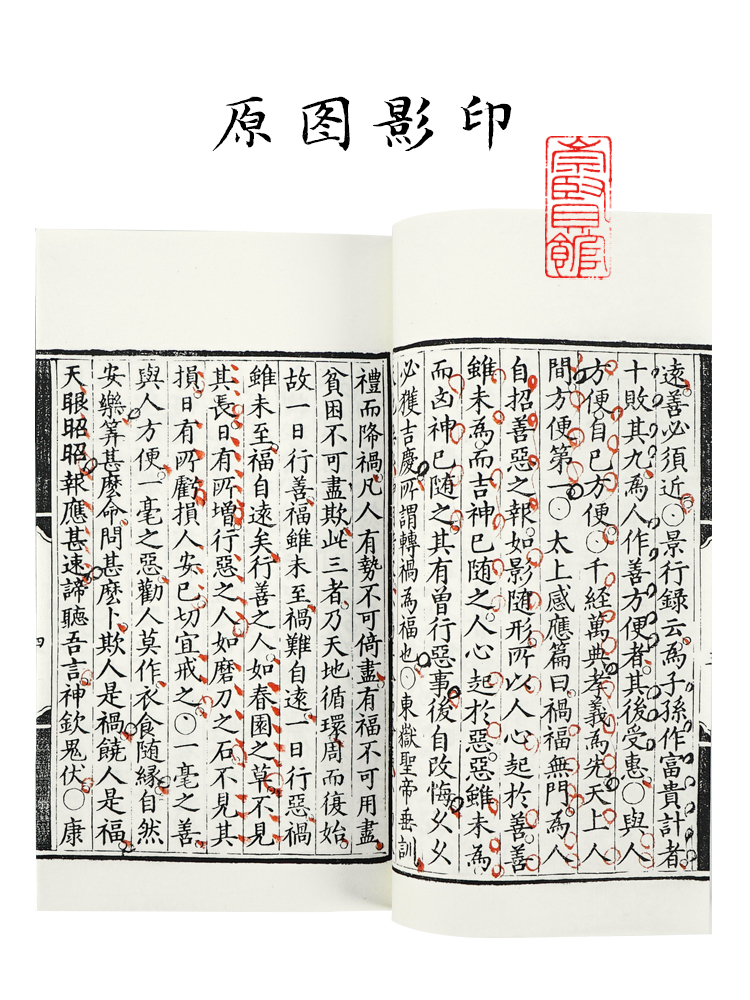 原图影印
崇賢館
遠善必須近○景行録云為子孫作富貴計者
十敗其九為人作善方便者其後受惠○與人
方便自己方便○千經萬典孝義為先天上人
間方便第一○太上感應篇曰禍福無門為人
自招善惡之報如影随形所以人心起於善善
雖未為而吉神已随之人心起於惡惡雖未為
而凶神已随之其有曽行惡事後自改悔乆乆
必獲吉慶所謂轉禍為福也○東嶽聖帝垂訓
禮而降禍凡人有勢不可倚盡有福不可用盡
貧困不可盡欺此三者乃天地循環周而復始
故一日行善福雖未至禍難自遠一日行惡禍
雖未至福自遠矣行善之人如春園之草不見
其長日有所增行惡之人如磨刀之石不見其
損日有所虧損人安已切宜戒之○一毫之善
與人方便一毫之惡勸人莫作衣食随縁自然
安樂筭甚麽命問甚麽卜欺人是禍饒人是福
天眼昭昭報應甚速諦聽吾言神欽鬼伏○康
四